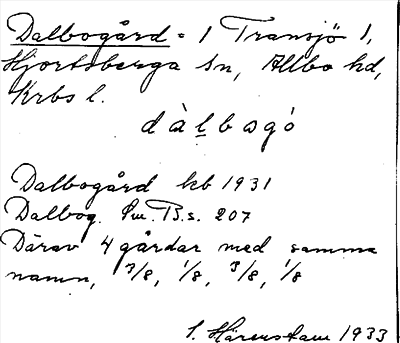 Dalbogård = 1 Transjö 1,
Hjortsberga sn, Allbo hd,
Krbs l.
dàlbogó
Dalbogård kb 1931
Dalbog. Sm. B.s. 207
Därav 4 gårdar med samma
namn, 3/8, 1/8, 3/8, 1/8
S. Härenstam 1933